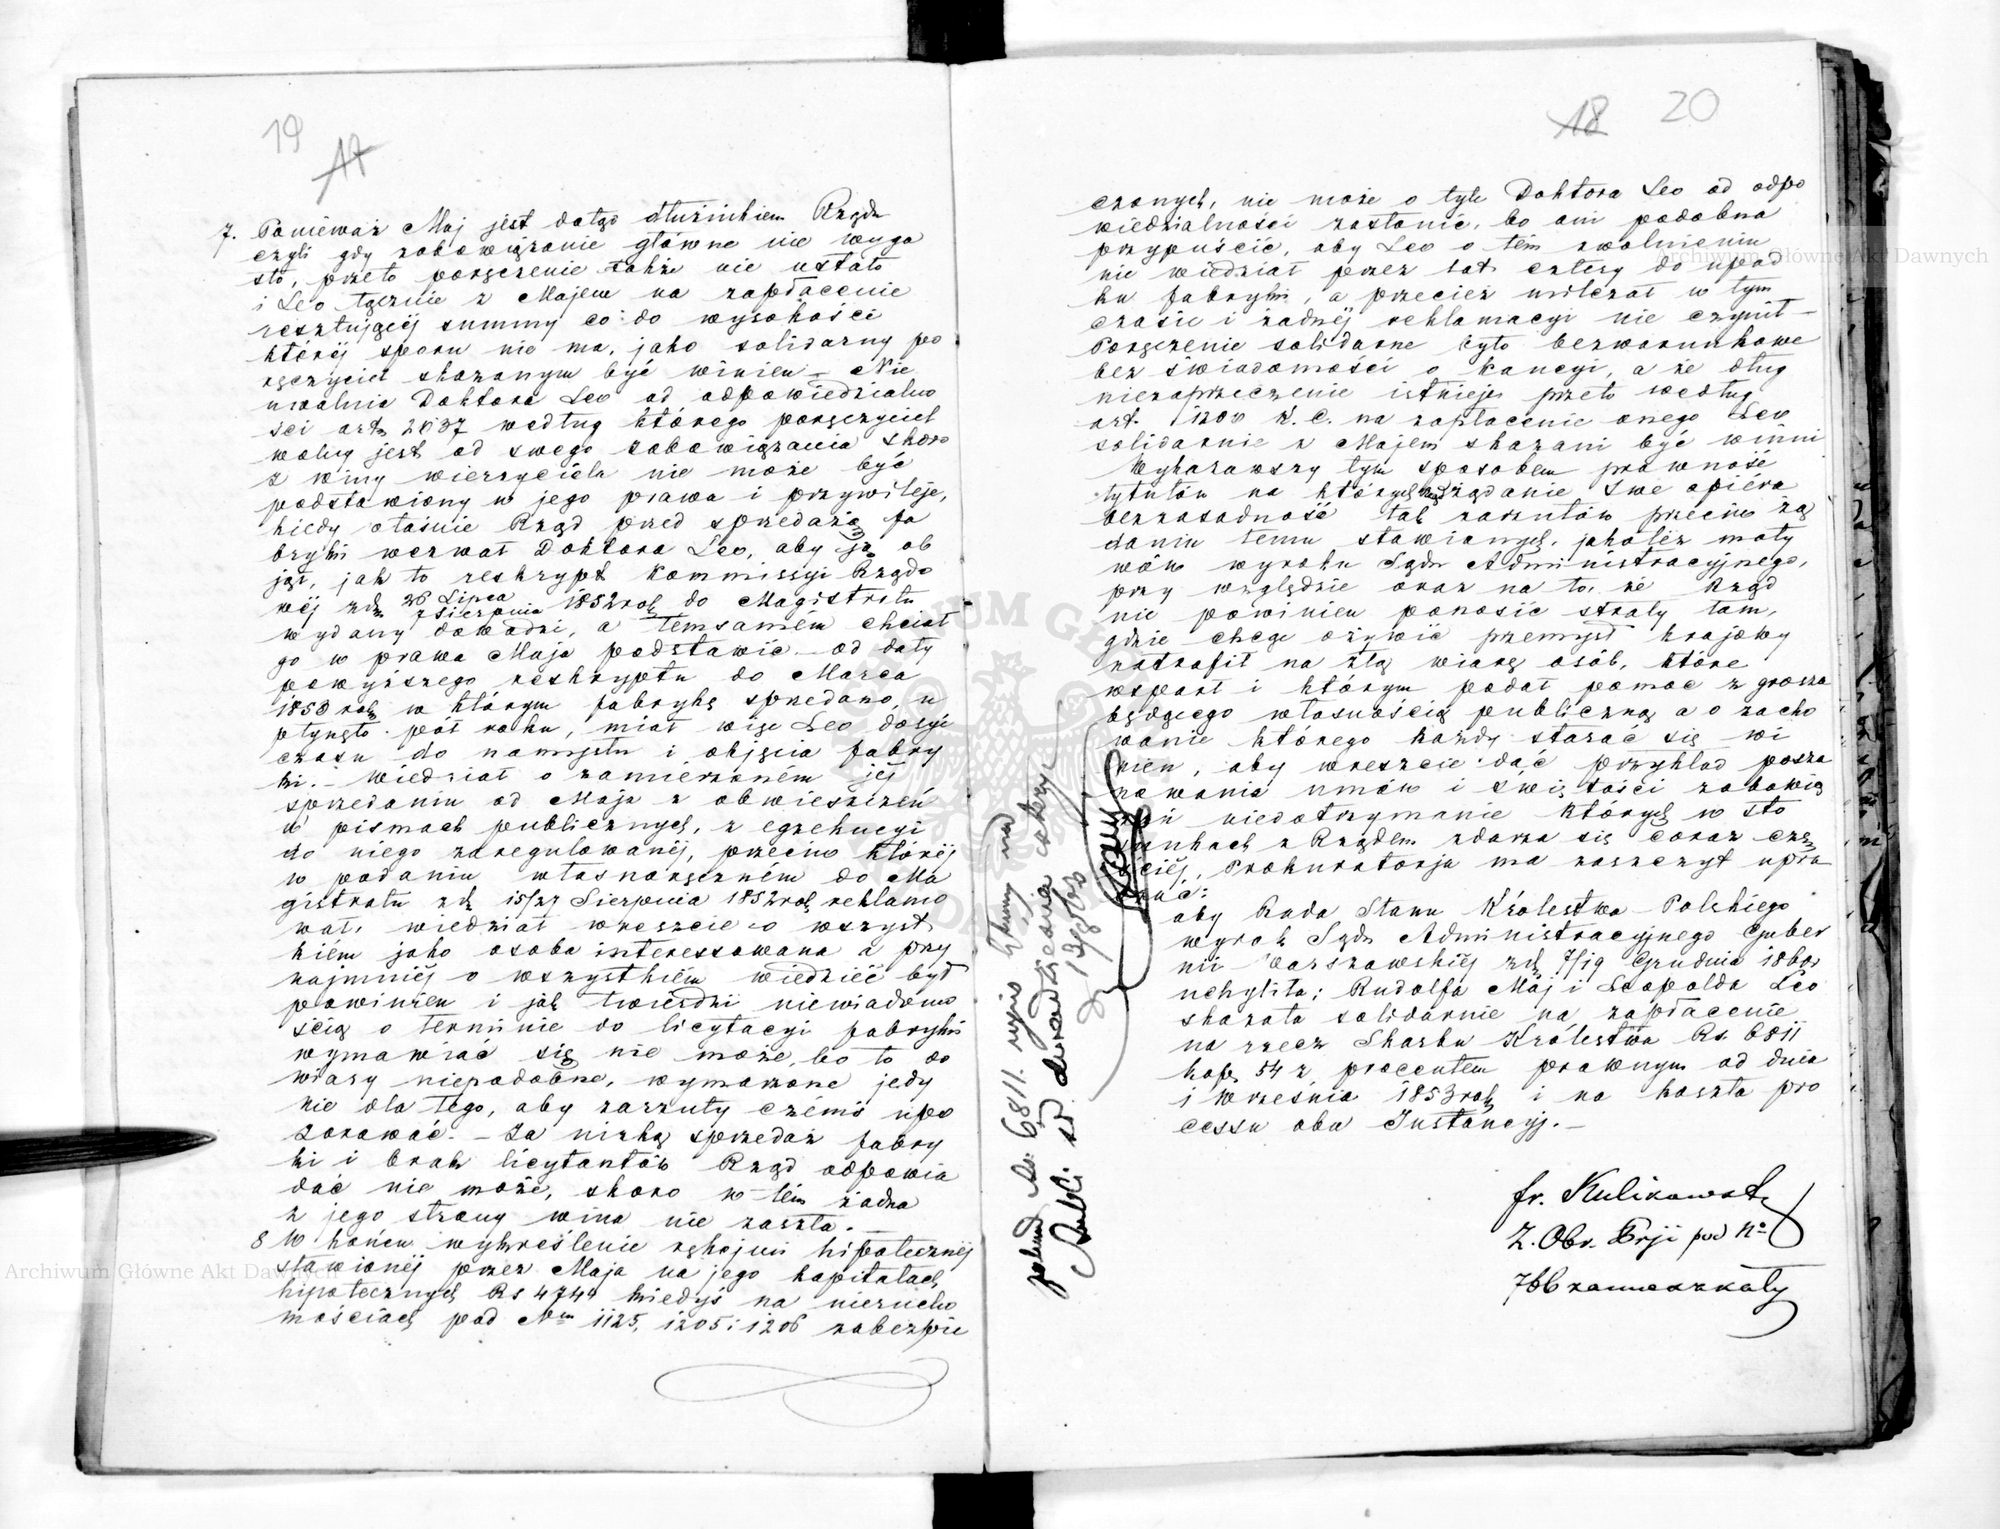 19
17
7. Ponieważ Maj jest dotąd dłużnikiem Rządu
czyli gdy zobowiązanie główne nie wyga
sło, przeto poręczenie także nie ustało
i Leo łącznie z Majem na zapłacenie
resztującéj summy co do wysokości
któréj sporu nie ma, jako solidarny po
ręczyciel skazanym być winien – Nie
uwalnia Doktora Leo od odpowiedzialno
ści art. 2037 według którego poręczyciel
wolny jest od swego zobowiązania skoro
z winy wierzyciela nie może być
podstawiony w jego prawa i przywileje,
kiedy właśnie Rząd przed sprzedażą fa
bryki wezwał Doktora Leo, aby ją ob
jął, jak to reskrypt Kommissyi Rządo
wéj zdn. 26 Lipca / 7 Sierpnia 1852 rok do Magistratu
wydany dowodzi, a temsamem chciał
go w prawa Maja podstawić – od daty
powyższego reskryptu do Marca
1853 rok w którym fabrykę sprzedano, u
płynęło pół roku, miał więc Leo dosyć
czasu do namysłu i objęcia fabry
ki. – Wiedział o zamierzoném jéj
sprzedaniu od Maja z obwieszczeń
w pismach publicznych, z egzekucyi
do niego zaregulowanéj, przeciw któréj
w podaniu własnoręczném do Ma
gistratu zdn 15/27 Sierpnia 1852 rok reklamo
wał, wiedział wreszcie o wszyst
kiém jako osoba interessowana a przy
najmniéj o wszystkiém wiedzieć był
powinien i jak twierdzi niewiadomo
ścią o terminie do licytacyi fabryki
wymawiać się nie może, bo to do
wiary niepodobne, wymarzone jedy
nie dla tego, aby zarzuty czémiś upo
zorować. – Za nizką sprzedaż fabry
ki i brak licytantów Rząd odpowia
dać nie może, skoro w tém żadna
z jego strony wina nie zaszła. –
8 W końcu wykreślenie rękojmi hipotecznéj
stawionéj przez Maja na jego kapitałach
hipotecznych Rs 4744 kiedyś na nierucho
mościach pod Nm 1125, 1205 i 1206 zabezpie
18 20
czonych, nie może o tyle Doktora Leo od odpo
wiedzialności zasłonić, bo ani podobna
przypuścić, aby Leo o tém zwolnieniu
nie wiedział przez lat cztery do upad
ku fabryki, a przecież milczał w tym
czasie i żadnéj reklamacyi nie czynił –
Poręczenie solidarne było bezwarunkowe
bez świadomości o kaucyi, a że dług
niezaprzeczenie istnieje przeto według
art. 1200 K. C. na zapłacenie onego Leo
solidarnie z Majem skazani być winni
Wykazawszy tym sposobem prawność
tytułów na których żądanie swe opiera
bezzasadność tak zarzutów przeciw żą
daniu temu stawianych, jakoteż moty
wów wyroku Sądu Administracyjnego,
przy względzie oraz na to, że Rząd
nie powinien ponosić straty tam,
gdzie chcąc ożywić przemysł krajowy
natrafił na złą wiarę osób, które
wsparł i którym podał pomoc z grosza
będącego własnością publiczną a o zacho
wanie którego każdy starać się wi
nien, aby wreszcie dać przykład posza
nowania umów i świętości zobowią
zań niedotrzymanie których w sto
sunkach z Rządem zdarza się coraz czę
ściéj, Prokuratorja ma zaszczyt upra
szać:
aby Rada Stanu Królestwa Polskiego
wyrok Sądu Administracyjnego Guber
nii Warszawskiéj zdn 7/19 Grudnia 1860r
uchyliła; Rudolfa Maj i Leopolda Leo
skazała solidarnie na zapłacenie
na rzecz Skarbu Królestwa Rs. 6811
kop. 54 z procentem prawnym od dnia
1 Września 1853 rok i na koszta pro
cessu obu Instancyj. –
fr. Kulikowski
Z. Obr. Prji pod No
766 zamieszkały
Archiwum Główne Akt Dawnych
Archiwum Główne Akt Dawnych